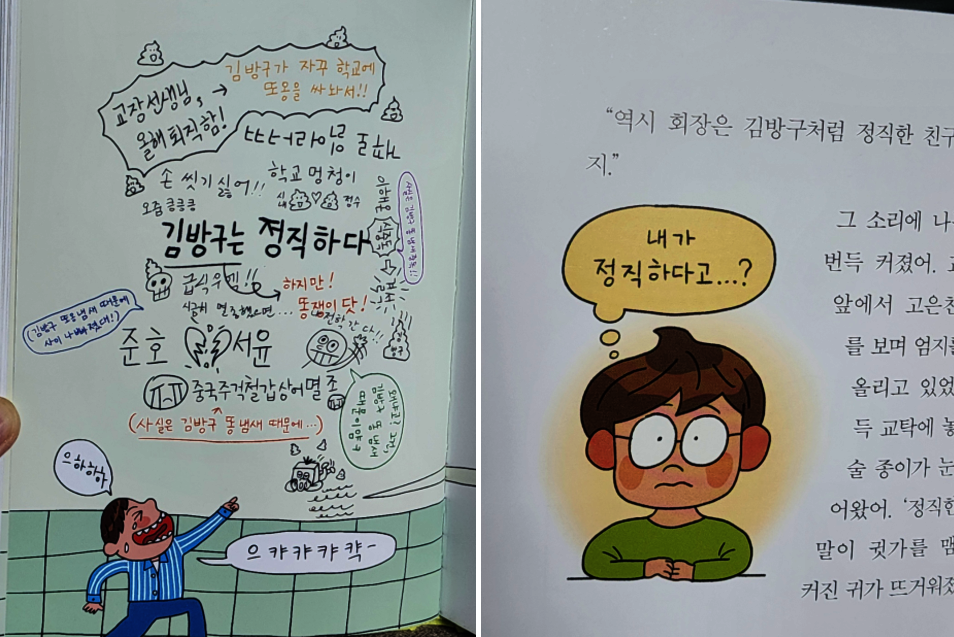 교장선생님,
올해 퇴직함!
→ 김방구가 자꾸 학교에
또옹을 싸 와서!!
손 씻기 싫어!!
오줌 콩콩콩
학교 멍청이
정수
김방구는 정직하다
급식
하지만!
똥쟁이닷!
전학 간다!!
(김방구 또옹 냄새 때문에
사이 나빠졌대!)
준호 서윤
중국주걱철갑상어멸
(사실은 김방구 똥 냄새 때문에…)
왜냐고?
김방구 똥냄새
때문이랍
으하하하
으캬캬캬캭-
“역시 회장은 김방구처럼 정직한 친구
지.”
내가
정직하다고...?
그 소리에 나
번득 커졌어.
앞에서 고은찬
를 보며 엄지를
올리고 있었
득 교탁에 놓
술 종이가 눈
어왔어. ‘정직한
말이 귓가를 맴
커진 귀가 뜨거워졌